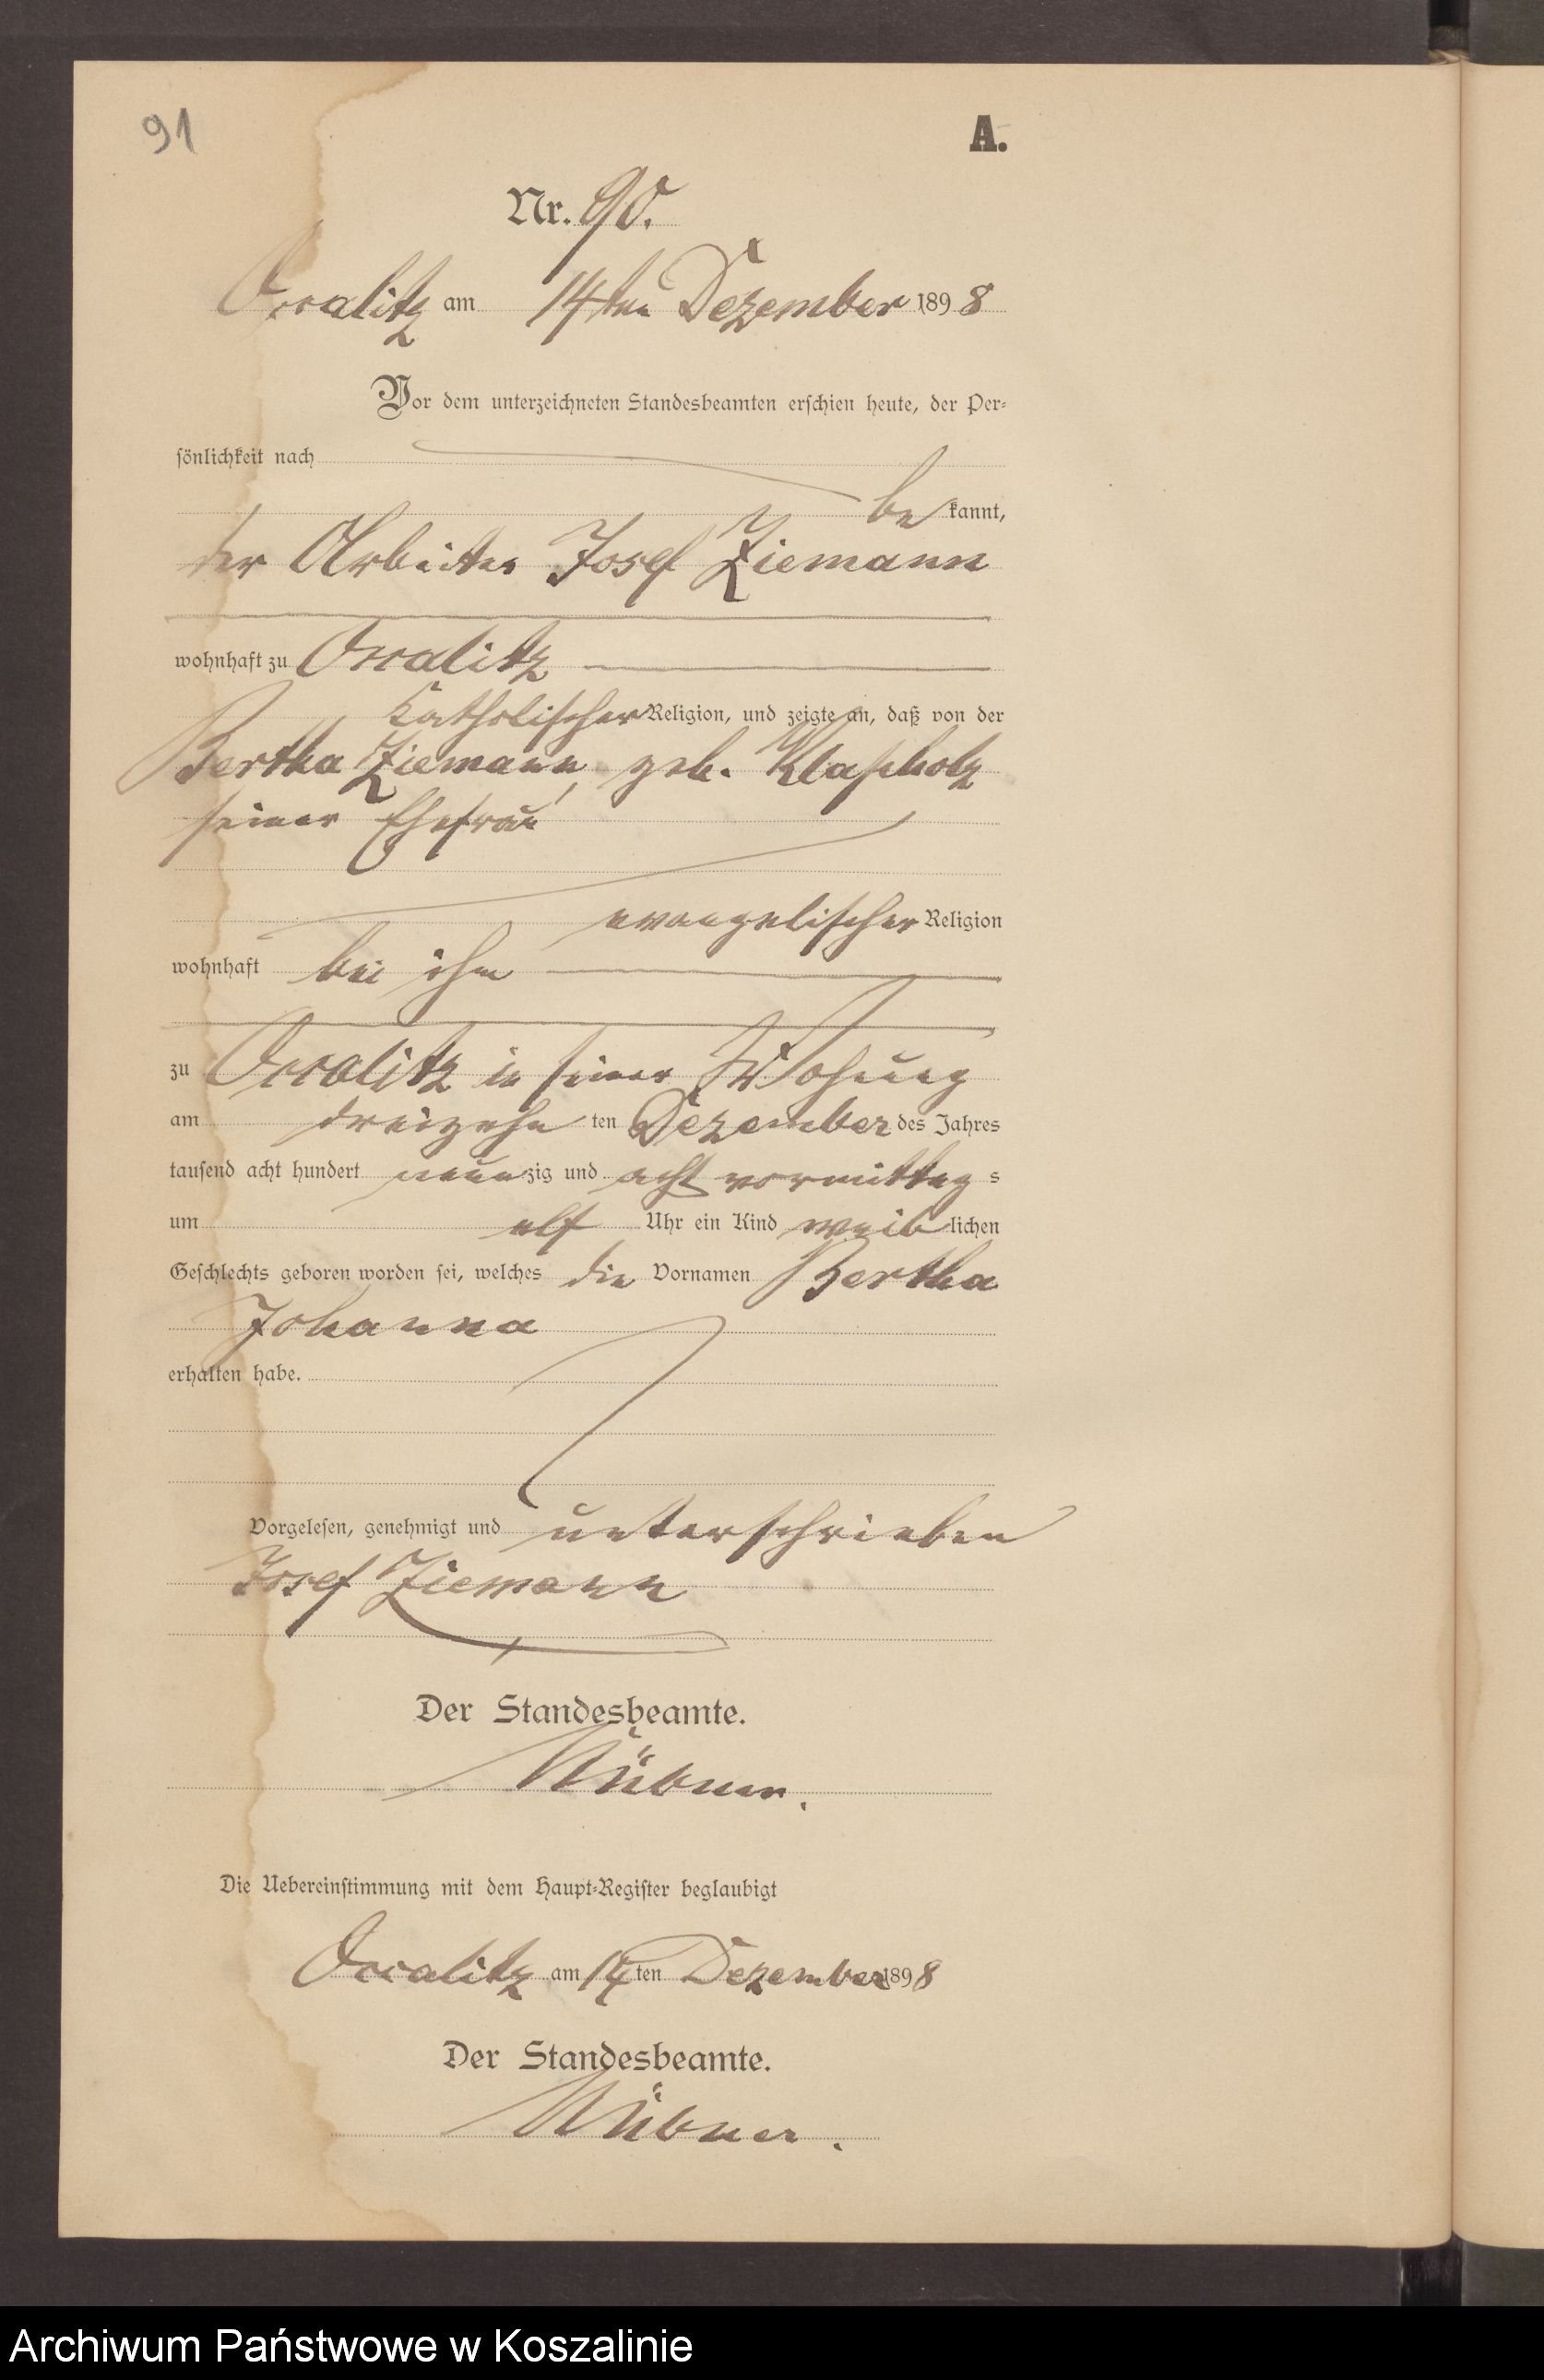 91
A.
Nr. 90.
Ossalitz am 14ten Dezember 1898
Vor dem unterzeichneten Standesbeamten erschien heute, der Per-
sönlichkeit nach
be kannt,
der Arbeiter Josef Ziemann
wohnhaft zu Ossalitz
katholischer Religion, und zeigte an, daß von der
Bertha Ziemann, geb. Klapholz
seiner Ehefrau
evangelischer Religion
wohnhaft bei ihm
zu Ossalitz in seiner Wohnung
am dreizehn ten Dezember des Jahres
tausend acht hundert neunzig und acht vormittags
um elf Uhr ein Kind weiblichen
Geschlechts geboren worden sei, welches die Vornamen Bertha
Johanna
erhalten habe.
Vorgelesen, genehmigt und unterschrieben
Josef Ziemann
Der Standesbeamte.
Die Uebereinstimmung mit dem Haupt-Register beglaubigt
Ossalitz am 14ten Dezember 1898
Der Standesbeamte.
Archiwum Państwowe w Koszalinie